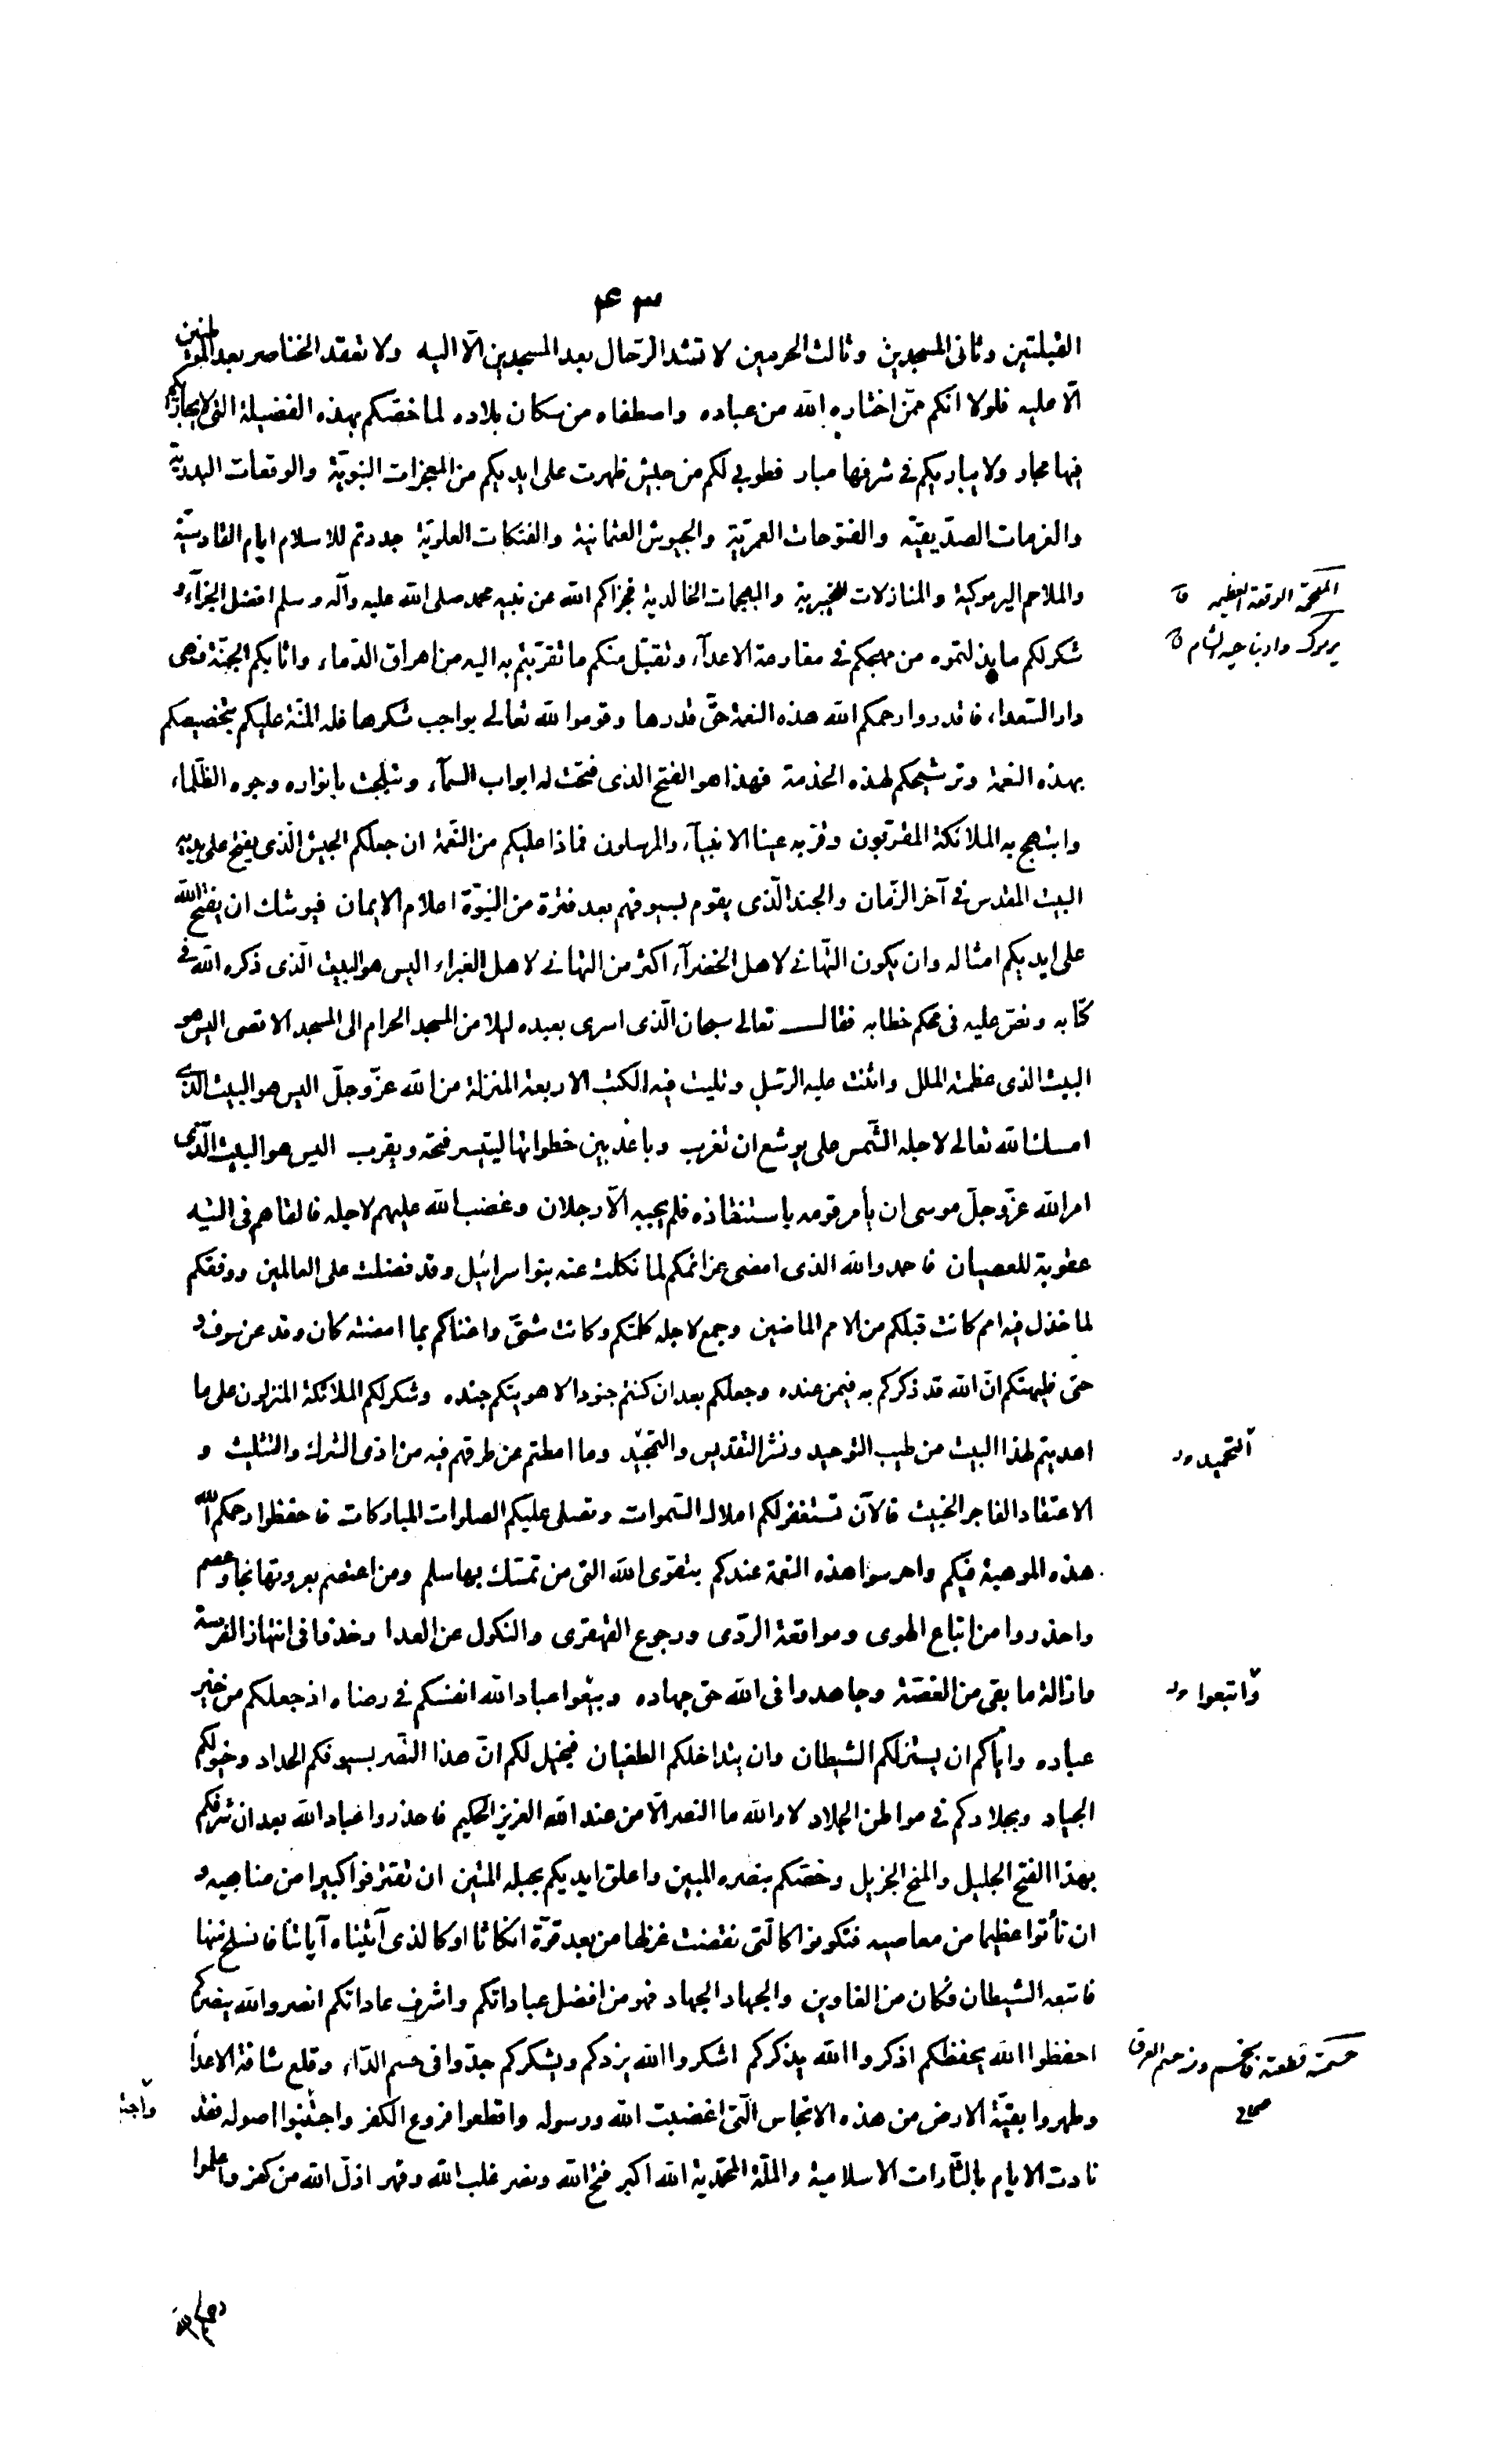 ٤٣
القبلتين وثانى المسجدين وثالث الحرمين لا تشد الرّحال بعد المسجدين الّا اليه ولا تعقد الخناصر بعد الموطنين
الّا عليه فلولا انكم ممّن اختاره الله من عباده واصطفاه من سكان بلاده لما خصّكم بهذه الفضيلة التى لا يجاريكم
فيها مجار ولا يباريكم فى شرفها مبار فطوبى لكم من جيش ظهرت على ايديكم من المعجزات النبويّة والوقعات البدريّة
والعزمات الصدّيقيّة والفتوحات العمريّة والجيوش العثمانية والفتكات العلويّة جددتم للاسلام ايام القادسيّة
والملاحم اليرموكية والمنازلات الخيبرية والهجمات الخالدية فجزاكم الله عن نبيه محمد صلى الله عليه وآله وسلم افضل الجزآء و
شكر لكم ما بذلتموه من مهجكم فى مقارعة الاعدآء وتقبّل منكم ما تقرّبتم به اليه من اهراق الدّماء واثابكم الجنّة فهى
دار السّعداء فاقدروا رحمكم الله هذه النعمة حقّ قدرها وقوموا لله تعالى بواجب شكرها فله المنّة عليكم بتخصيصكم
بهذه النعمة وترشيحكم لهذه الخدمة فهذا هو الفتح الذى فتحت له ابواب السمآء وتبلّجت بانواره وجوه الظّلماء
وابتهج به الملائكة المقرّبون وقرّ به عينا الانبيآء والمرسلون فماذا عليكم من النّعمة ان جعلكم الجيش الّذى يفتح على يديه
البيت المقدس فى آخر الزّمان والجند الّذى يقوم بسيوفهم بعد فترة من النبوّة اعلام الايمان فيوشك ان يفتح الله
على ايديكم امثاله وان يكون التّهانى لاهل الخضرآء اكثر من التهانى لاهل الغبراء اليس هو البيت الّذى ذكره الله فى
كتابه ونصّ عليه فى محكم خطابه فقال تعالى سبحان الّذى اسرى بعبده ليلا من المسجد الحرام الى المسجد الاقصى اليس هو
البيت الذى عظمته الملل واثنت عليه الرسّل وتليت فيه الكتب الاربعة المنزلة من الله عزّ وجلّ اليس هو البيت الذى
امسك الله تعالى لاجله الشّمس على يوشع ان تغرب وباعد بين خطواتها ليتيسر فتحه ويقرب اليس هو البيت الّذى
امر الله عزّ وجلّ موسى ان يأمر قومه باستنقاذه فلم يجبه الّا رجلان وغضب الله عليهم لاجله فالقاهم فى التيه
عقوبة للعصيان فاحمدوا الله الذى امضى عزائمكم لما نكلت عنه بنو اسرائيل وقد فضلت على العالمين ووفقكم
لما خذل فيه امم كانت قبلكم من الامم الماضين وجمع لاجله كلمتكم وكانت شتّى واغناكم بما امضته كان وقد عن سوف و
حتى فليهنكم انّ الله قد ذكركم به فيمن عنده وجعلكم بعد ان كنتم جنودا لاهويتكم جنده وشكر لكم الملائكة المنزلون على ما
اهديتم لهذا البيت من طيب التوحيد ونشر التقديس والتمجيد وما امطتم عن طرقهم فيه من اذى الشرك والتثليث و
الاعتقاد الفاجر الخبيث فالآن تستغفر لكم املاك السّموات وتصلى عليكم الصلوات المباركات فاحفظوا رحمكم الله
هذه الموهبة فيكم واحرسوا هذه النعمة عندكم بتقوى الله التى من تمسّك بها سلم ومن اعتصم بعروتها نجا وعصم
واحذروا من اتباع الهوى وموافقة الردّى ورجوع القهقرى والنكول عن العدا وخذوا فى انتهاز الفرصة
وازالة ما بقى من الغصّة وجاهدوا فى الله حق جهاده وبيعوا عباد الله انفسكم فى رضاه اذ جعلكم من خير
عباده وايّاكم ان يستزلكم الشيطان وان يتداخلكم الطغيان فيخيل لكم انّ هذا النّصر بسيوفكم الحداد وخيولكم
الجياد وبجلادكم فى مواطن الجلاد لا والله ما النصر الّا من عند الله العزيز الحكيم فاحذروا عباد الله بعد ان شرفكم
بهذا الفتح الجليل والمنح الجزيل وخصّكم بنصره المبين واعلق ايديكم بحبله المتين ان تقترفوا كبيرا من مناهيه و
ان تأتوا عظيما من معاصيه فتكونوا كالّتى نقضت غزلها من بعد قوّة انكاثا او كالذى آتيناه آياتنا فانسلخ منها
فاتبعه الشيطان فكان من الغاوين والجهاد الجهاد فهو من افضل عباداتكم واشرف عاداتكم انصروا الله ينصركم
احفظوا الله يحفظكم اذكروا الله يذكركم اشكروا الله يزدكم ويشكركم جدّوا فى حسم الدّاء وقلع شافة الاعداء
وطهروا بقيّة الارض من هذه الانجاس الّتى اغضبت الله ورسوله واقطعوا فروع الكفر واجتنبوا اصوله فقد
نادت الايام بالثّارات الاسلامية والملّة المحمّدية الله اكبر فتح الله ونصر غلب الله وقهر اذلّ الله من كفر واعلموا
الملحمة الوقعة العظيمة ق
يرموك واد بناحية الشام ق
التحميد
واتبعوا
حسمته قطعته فانحسم ومنه حسم العرق
صحاح
رحمكم الله